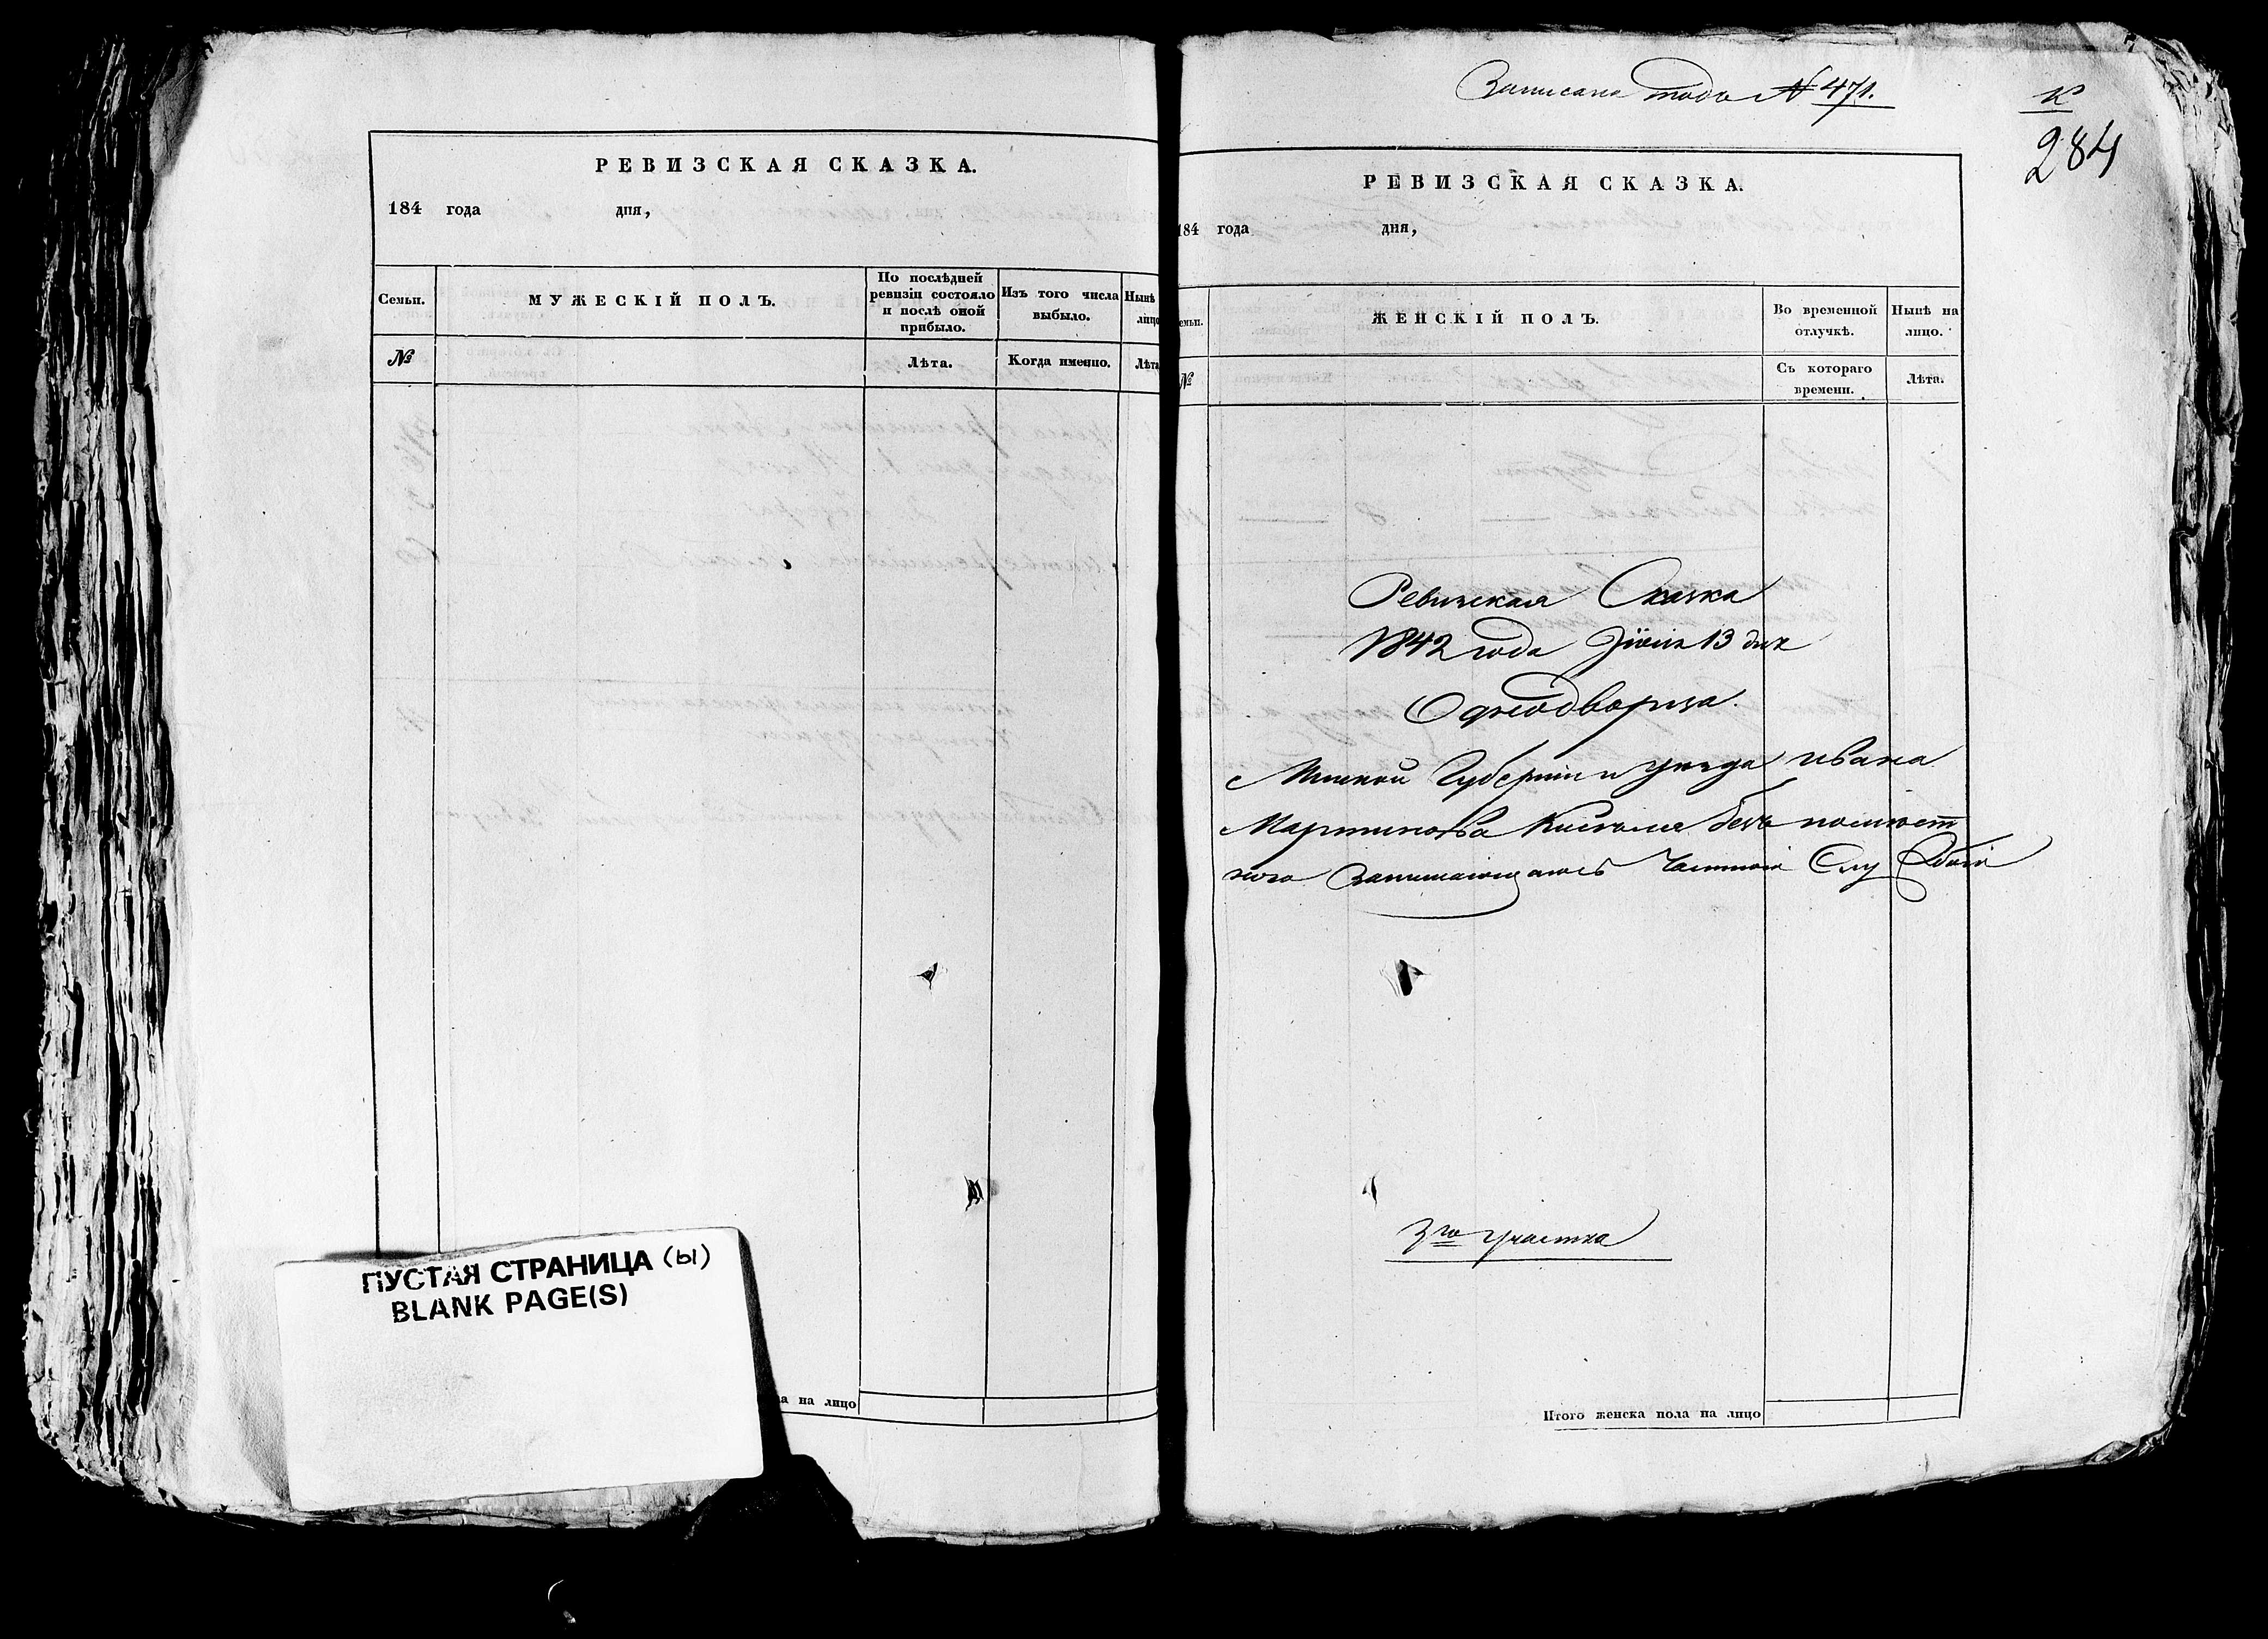 РЕВИЗСКАЯ СКАЗКА.
184 года дня,
Семьи.
МУЖЕСКІЙ ПОЛЪ.
По послѣдней ревизіи состояло и послѣ оной прибыло.
Изъ того числа выбыло.
Нынѣ
лицо
№
Лѣта.
Когда именно.
Лѣта
ПУСТАЯ СТРАНИЦА (ы)
BLANK PAGE(S)
на лицо
Записана подъ № 471.
284
РЕВИЗСКАЯ СКАЗКА.
184 года дня,
емьи.
ЖЕНСКІЙ ПОЛЪ.
Во временной отлучкѣ.
Нынѣ на лицо.
№
Съ котораго времени.
Лѣта.
Ревизская Сказка
1842 года Іюня 13 дня
Однодворца.
Минской Губерніи и уѣзда Ивана
Мартинова безъ помѣст
ного Занимающагось Частною Службою
3го участка
Итого женска пола на лицо